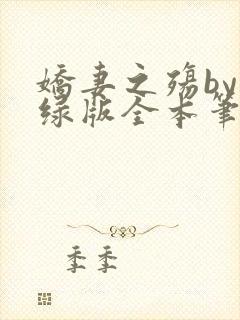 娇妻之殇by
绿版全本笔
季季